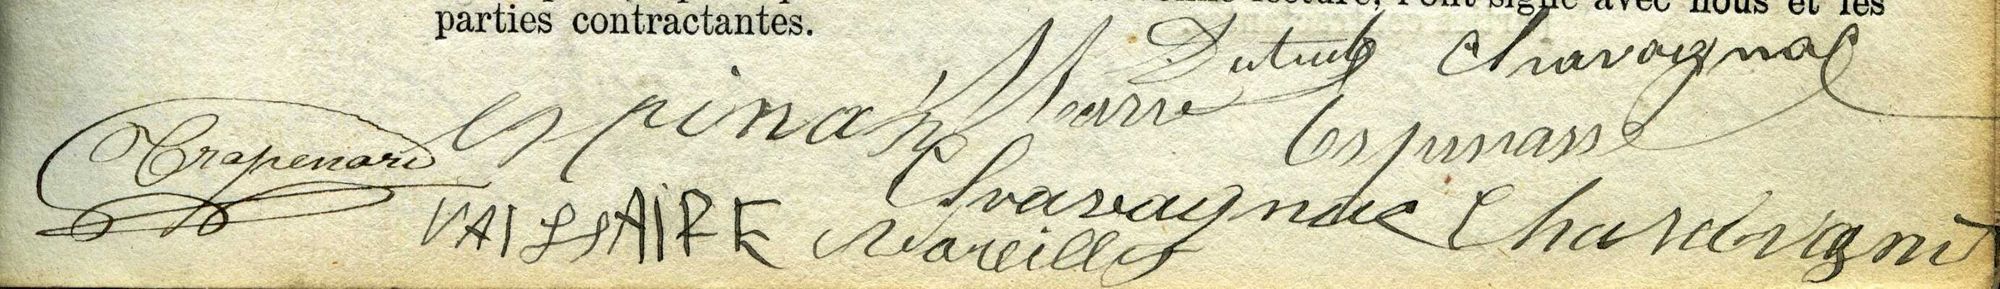 lecture, l'ont signé avec nous et les
parties contractantes.
Dutuel Chavagnac
Espinas Marre Espinasse
Trapenard
Chavagnac Chardvigné
VAISSAIRE Mareilles